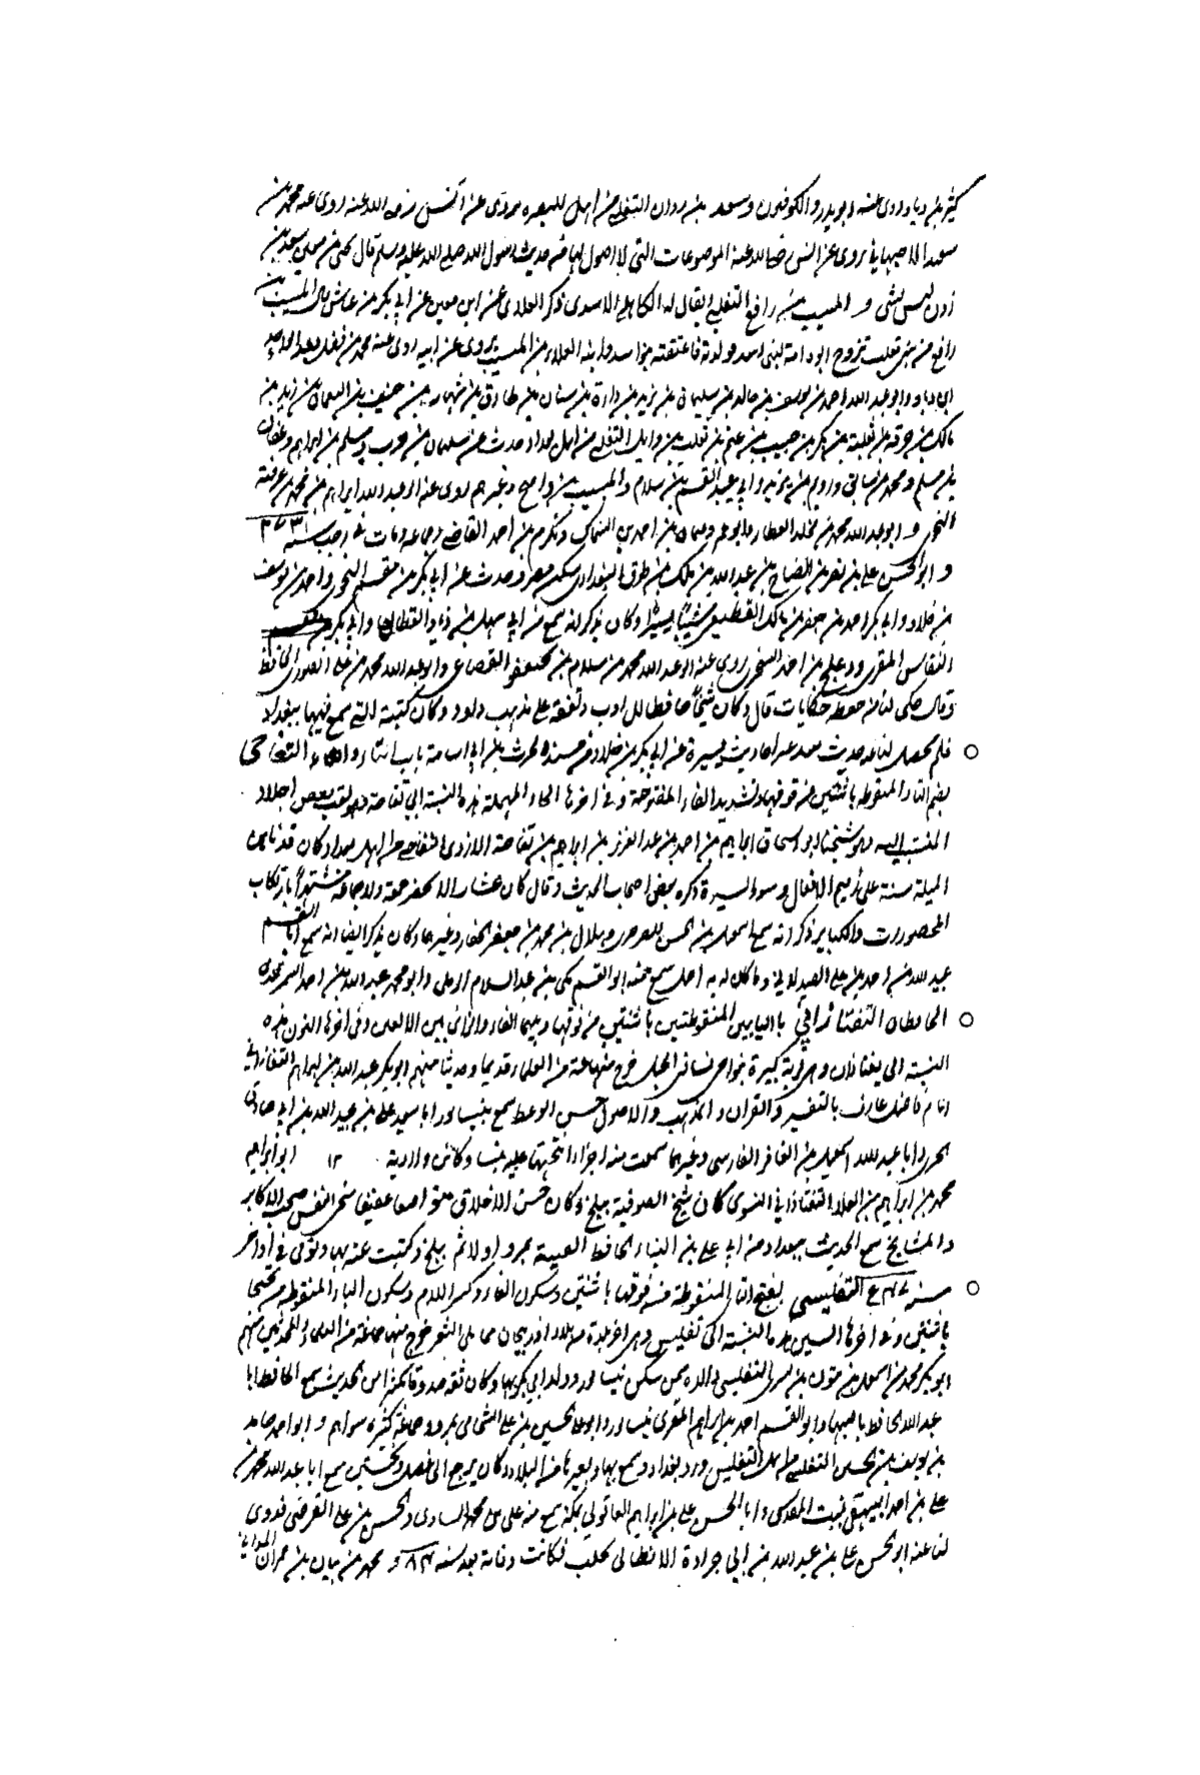 كثير بن دينار روى عنه ابو بدر والكوفيون وسعيد بن بردان التغلبي من اهل البصره يروى عن انس رضى الله عنه روى عنه محمد بن
سعيد الاصبهاني روى عن انس رضى الله عنه الموضوعات التى لا اصول لها من حديث رسول الله صلى الله عليه وسلم قال يحيى بن معين سعيد بن
ليس بشى و المسيب بن رافع التغلبي يقال له الكاهلي الاسدى ذكر الغلابى عن ابن معين عن ابى بكر بن عياش قال المسيب بن
رافع من بنى تغلب تزوج ابوه امة لبنى اسد فولدته فاعتقته بنو اسد وابنه العلاء بن المسيب يروى عن ابيه روى عنه محمد بن فضيل
ابو عبد الله احمد بن يوسف بن خالد بن سليمان بن يزيد بن دارة بن سنان بن طارق بن شهاب بن حنيف بن النعمان بن زيد بن
مالك بن حرفة بن ثعلبة بن بكر بن حبيب بن غنم بن تغلب بن وايل التغلبي من اهل بغداد حدث عن سليمان بن حرب ومسلم بن ابراهيم وعفان
بن مسلم ومحمد بن سابق ورويم بن يزيد وابى عبيد القسم بن سلام والمسيب بن واضح وغيرهم روى عنه ابو عبد الله ابراهيم بن محمد بن عرفة
النحوى و ابو عبد الله محمد بن مخلد العطار وابو عمرو عثمان بن احمد بن السماك ومكرم بن احمد القاضى وجماعة ومات فى رجب سنة ٢٧٣
و ابو الحسن على بن نصر بن الصباح بن عبد الله بن ملك بن طوق البغدادى سكن مصر وحدث عن ابى بكر بن مقسم النحوى واحمد بن يوسف
بن خلاد وابى بكر احمد بن جعفر بن مالك القطيعى شيئا يسيرا وكان يذكر انه سمع من ابى سهل بن زياد القطان وابى بكر بن مقسم
النقاش المقرى ودعلج بن احمد السجزى روى عنه ابو عبد الله محمد بن سلام بن جعفر القضاعى وابو عبد الله محمد بن على الصورى الحافظ
وقال حكى لنا من حفظه حكايات قال وكان شيخا حافظا للادب وتفقه على مذهب داود وكان كتبه التى سمع فيها ببغداد
فلم يحصل لنا عنه حديث سوى احاديث يسيرة عن ابى بكر بن خلاد من مسند الحرث بن ابى اسامة باب التاء والفاء التفاحى
بضم التاء المنقوطة باثنتين من فوقها وتشديد الفاء المفتوحة وفى اخرها الحاء المهملة هذه النسبة الى تفاحة وهو لقب بعض اجداد
المنتسب اليه وهو شيخنا ابو اسحاق ابراهيم بن احمد بن عبد العزيز بن ابراهيم بن تفاحة الازدى التفاحى من اهل بغداد كان قد ناهز
الميلة سنة على ذميم الافعال وسوء السيرة ذكره بعض اصحاب الحديث وقال كان عشارا لا يحضر جمعة ولا جماعة مشتهرا بارتكاب
المحظورات والكباير ذكر انه سمع اسمعيل بن الحسن الصرصرى وهلال بن محمد بن جعفر الحفار وغيرهما وكان يذكر ايضا انه سمع ابا القسم
عبيد الله بن احمد بن على الصيدلانى وما كان له به اصل سمع منه ابو القسم مكى بن عبد السلام الرملى وابو محمد عبد الله بن احمد السمرقندى
الحافظان التفتازانى بالتايين المنقوطتين باثنتين من فوقها وبينهما الفاء والزاى بين الالفين وفى اخرها النون هذه
النسبة الى تفتازان وهى قرية كبيرة بنواحى نسا فى الجبل خرج منها جماعة من العلماء قديما وحديثا منهم ابو بكر عبد الله بن ابراهيم التفتازانى
امام فاضل عارف بالتفسير والقران والمذهب والاصول حسن الوعظ سمع بنيسابور ابا سعد على بن عبيد الله بن ابى صادق
الحيرى وابا عبد الله اسمعيل بن الغافر الفارسى وغيرهما سمعت منه اجزاء انتخبتها عليه بنسا وكانت ولادته ابو ابراهيم
محمد بن ابراهيم بن العلاء التفتازانى النسوى كان شيخ الصوفية ببلخ وكان حسن الاخلاق متواضعا عفيفا سخى النفس صحب الاكابر
والمشايخ سمع الحديث ببغداد من ابى على بن البناء الحافظ لقيته بمرو اولا ثم ببلخ وكتبت عنه بها وتوفى فى اواخر
سنة التفليسى بفتح التاء المنقوطة من فوقها باثنتين وسكون الفاء وكسر اللام وسكون الياء المنقوطة من تحتها
باثنتين وفى اخرها السين هذه النسبة الى تفليس وهى اخر بلدة من بلاد اذربيجان مما يلى الثغر خرج منها جماعة من العلماء والمحدثين منهم
ابو بكر محمد بن اسمعيل بن بنون بن السرى التفليسى والده ممن سكن نيسابور وولد ابو بكر بها وكان ثقة صدوقا مكثرا من الحديث سمع الحافظ ابا
عبد الله الحافظ باصبهان وابو القسم احمد بن ابراهيم المقرى بنيسابور وابو على الحسين بن على الشحامى بمرو وجماعة كثيرة سواهم و ابو احمد حامد
بن يوسف بن الحسين التفليسى من اهل تفليس ورد بغداد وسمع بها وبغيرها من البلاد وكان يرجع الى فضل وتحقيق سمع ابا عبد الله محمد بن
على بن احمد البيهقى ببيت المقدس وابا الحسن على بن ابراهيم العاقولى بمكة سمع منه على بن محمد الساوى والحسن بن على القرضى فروى
لنا عنه ابو الحسن على بن عبد الله بن ابى جرادة الانطاكى بحلب فكانت وفاته بعد سنة ٤٨٣ و محمد بن بيان بن حمران المدائنى